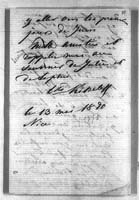 y aller vers les premiers
jours de Juin.
Mille amitiés et
rappelez-moi au
souvenir de
de Sophie
le 13 mai 1870
Nice